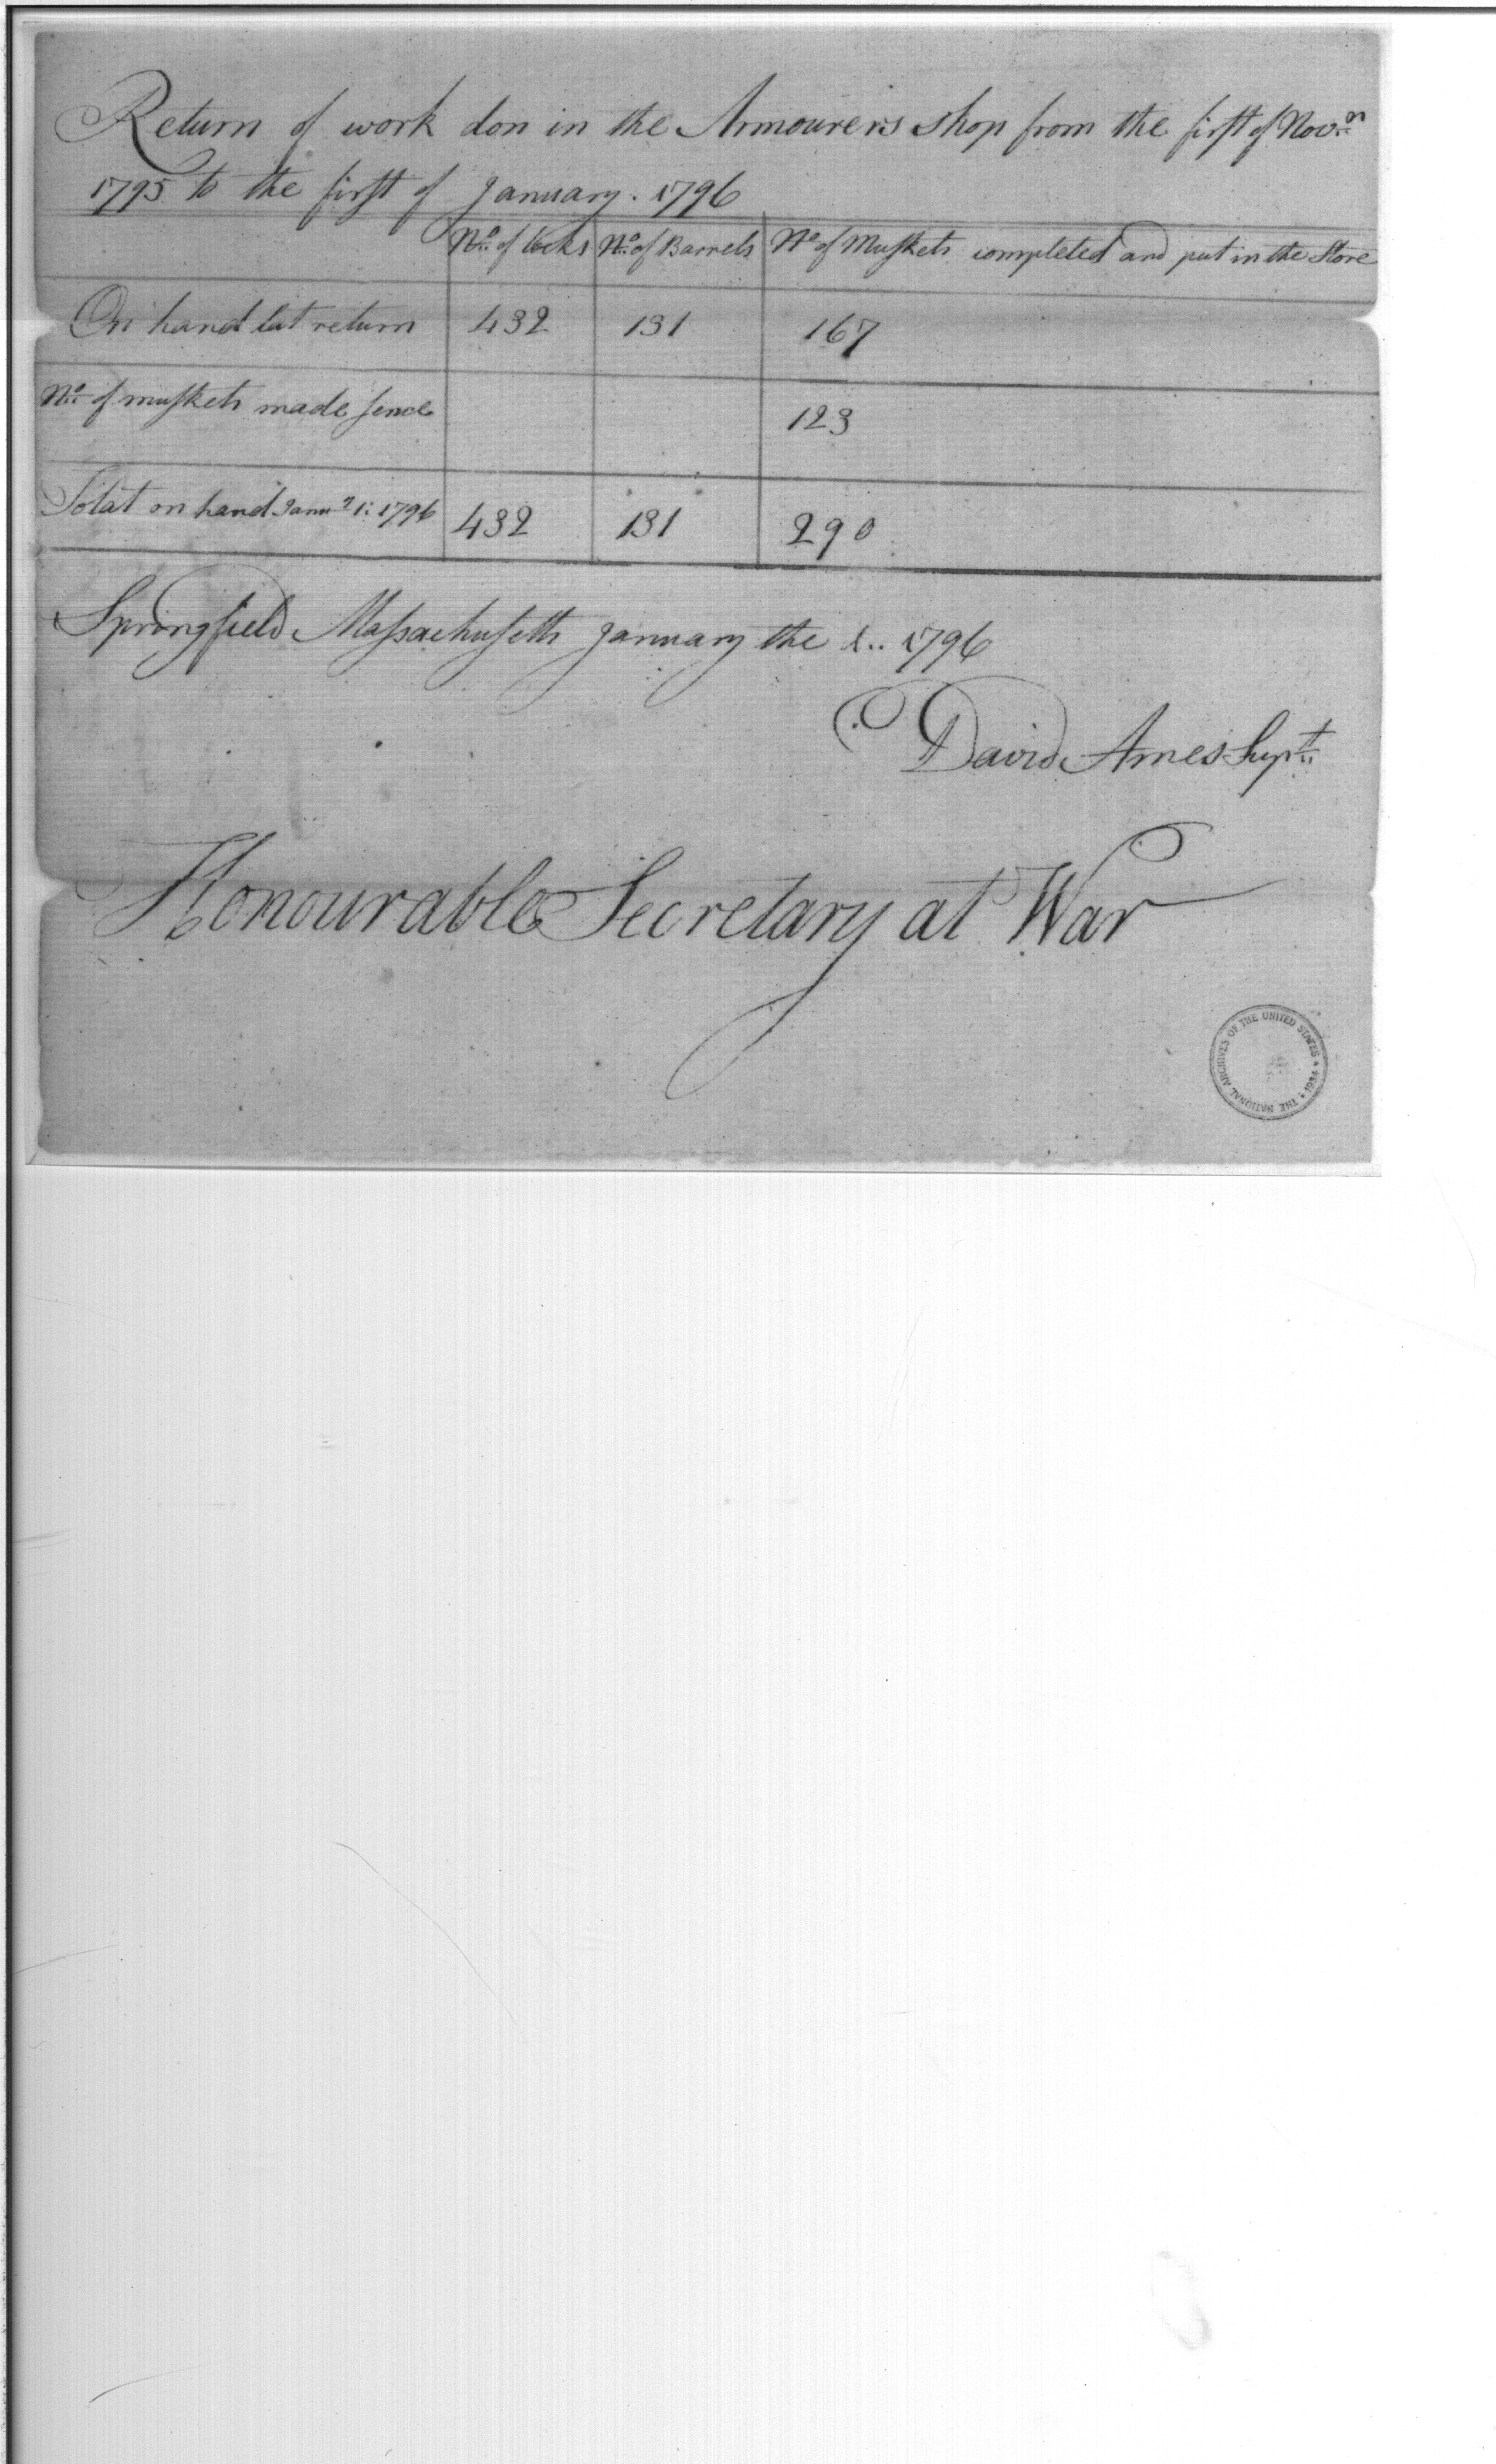 Return of work don in the Armourers Shop from the first of Nov.r
1795 to the first of January. 1796
No. of locks No. of Barrels No of Muskets completed and put in the Store
On hand last return 432 131 167
No. of muskets made sence 123
Total on hand Janu.y 1: 1796 432 131 290
Springfield Massachusetts January the 1.. 1796
David Ames Supt.
Honourable Secretary at War
THE NATIONAL ARCHIVES OF THE UNITED STATES * 1934 *